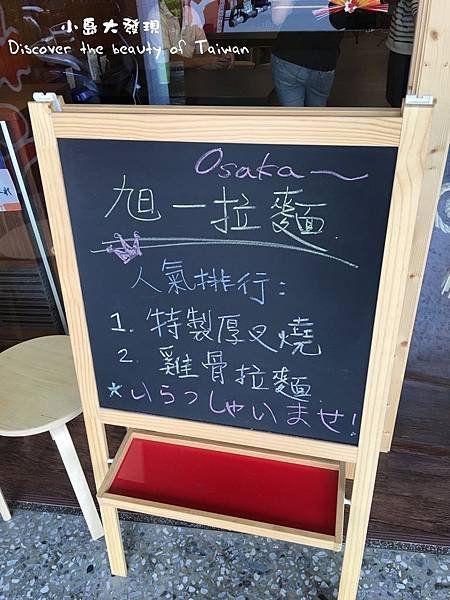 小島大發現
Discover the beauty of Taiwan
Osaka~
旭一拉麵
人氣排行:
1. 特製厚叉燒
2. 雞骨拉麵
*いらっしゃいませ!